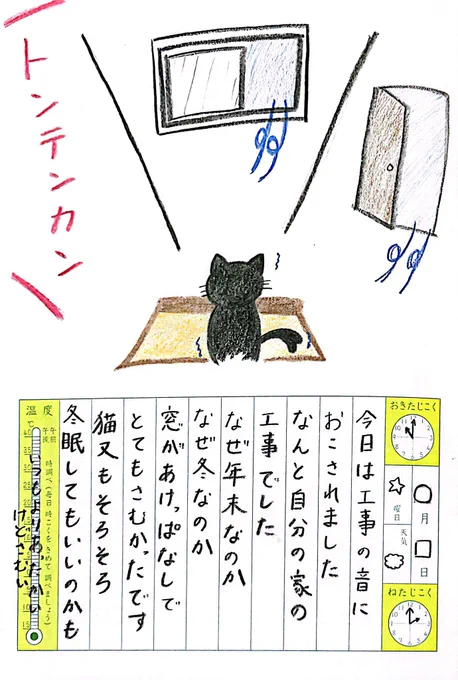 トンテンカン
おきたじこく
月
日
曜日
天気
ねたじこく
今日は工事の音に
おこされました
なんと自分の家の
工事でした
なぜ年末なのか
なぜ冬なのか
窓があけっぱなしで
とてもさむかったです
猫又もそろそろ
冬眠してもいいのかも
温度
午前
午後
時調べ(毎日時こくをきめて調べましょう)
いつもよりあたたかい
けどさむい